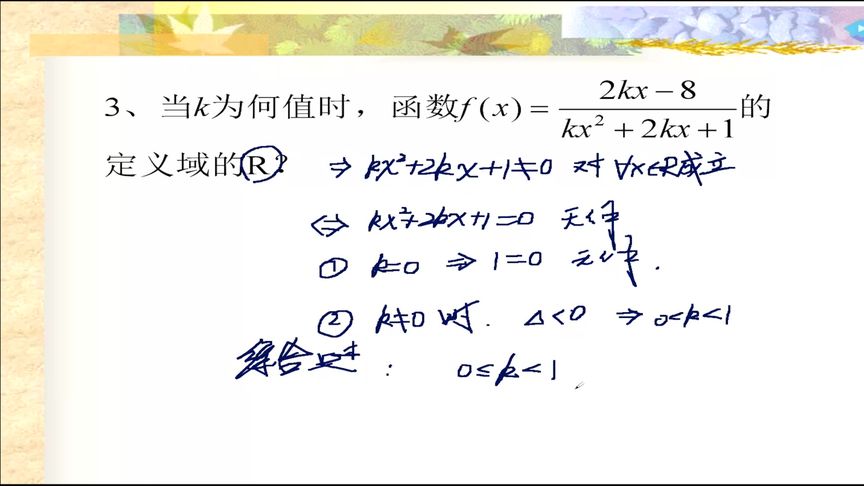 3、当k为何值时，函数f(x) = (2kx − 8)/(kx² + 2kx + 1)的
定义域的R? ⇒ kx²+2kx+1≠0 对∀x∈R成立
⇔ kx²+2kx+1=0 无解
① k=0 ⇒ 1=0 无解.
② k≠0时. Δ<0 ⇒ 0<k<1
综合: 0≤k<1